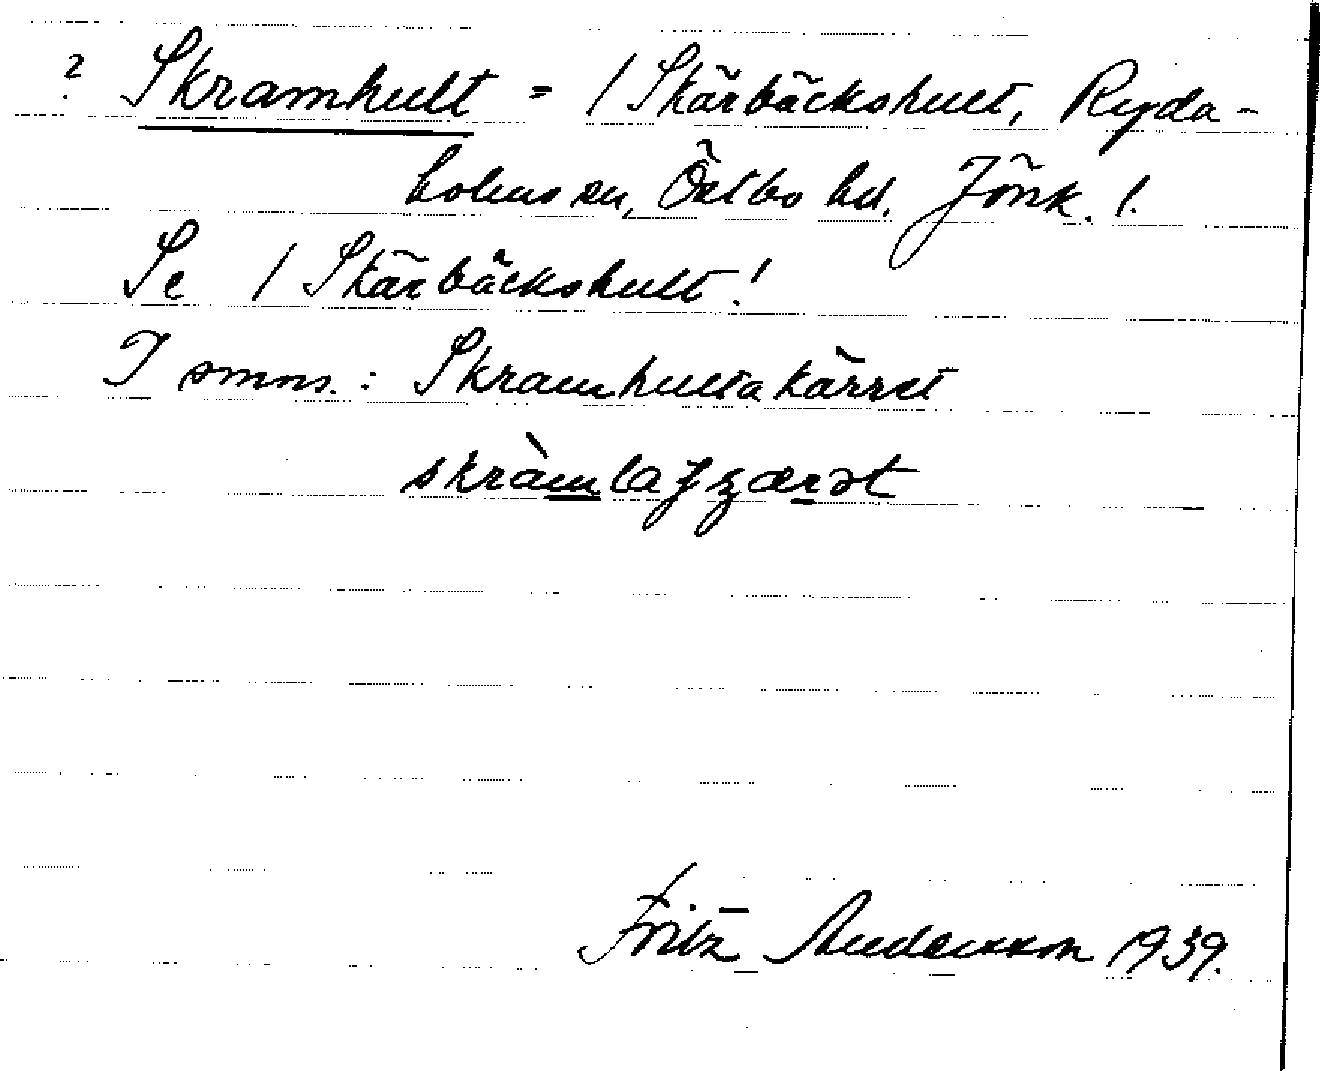 ? Skramhult = / Skärbäckshult, Ryda-
holms sn, Östbo hd. Jönk. /.
Se / Skärbäckshult!
I smns.: Skramhultakärret
Fritz Andersson 1939.